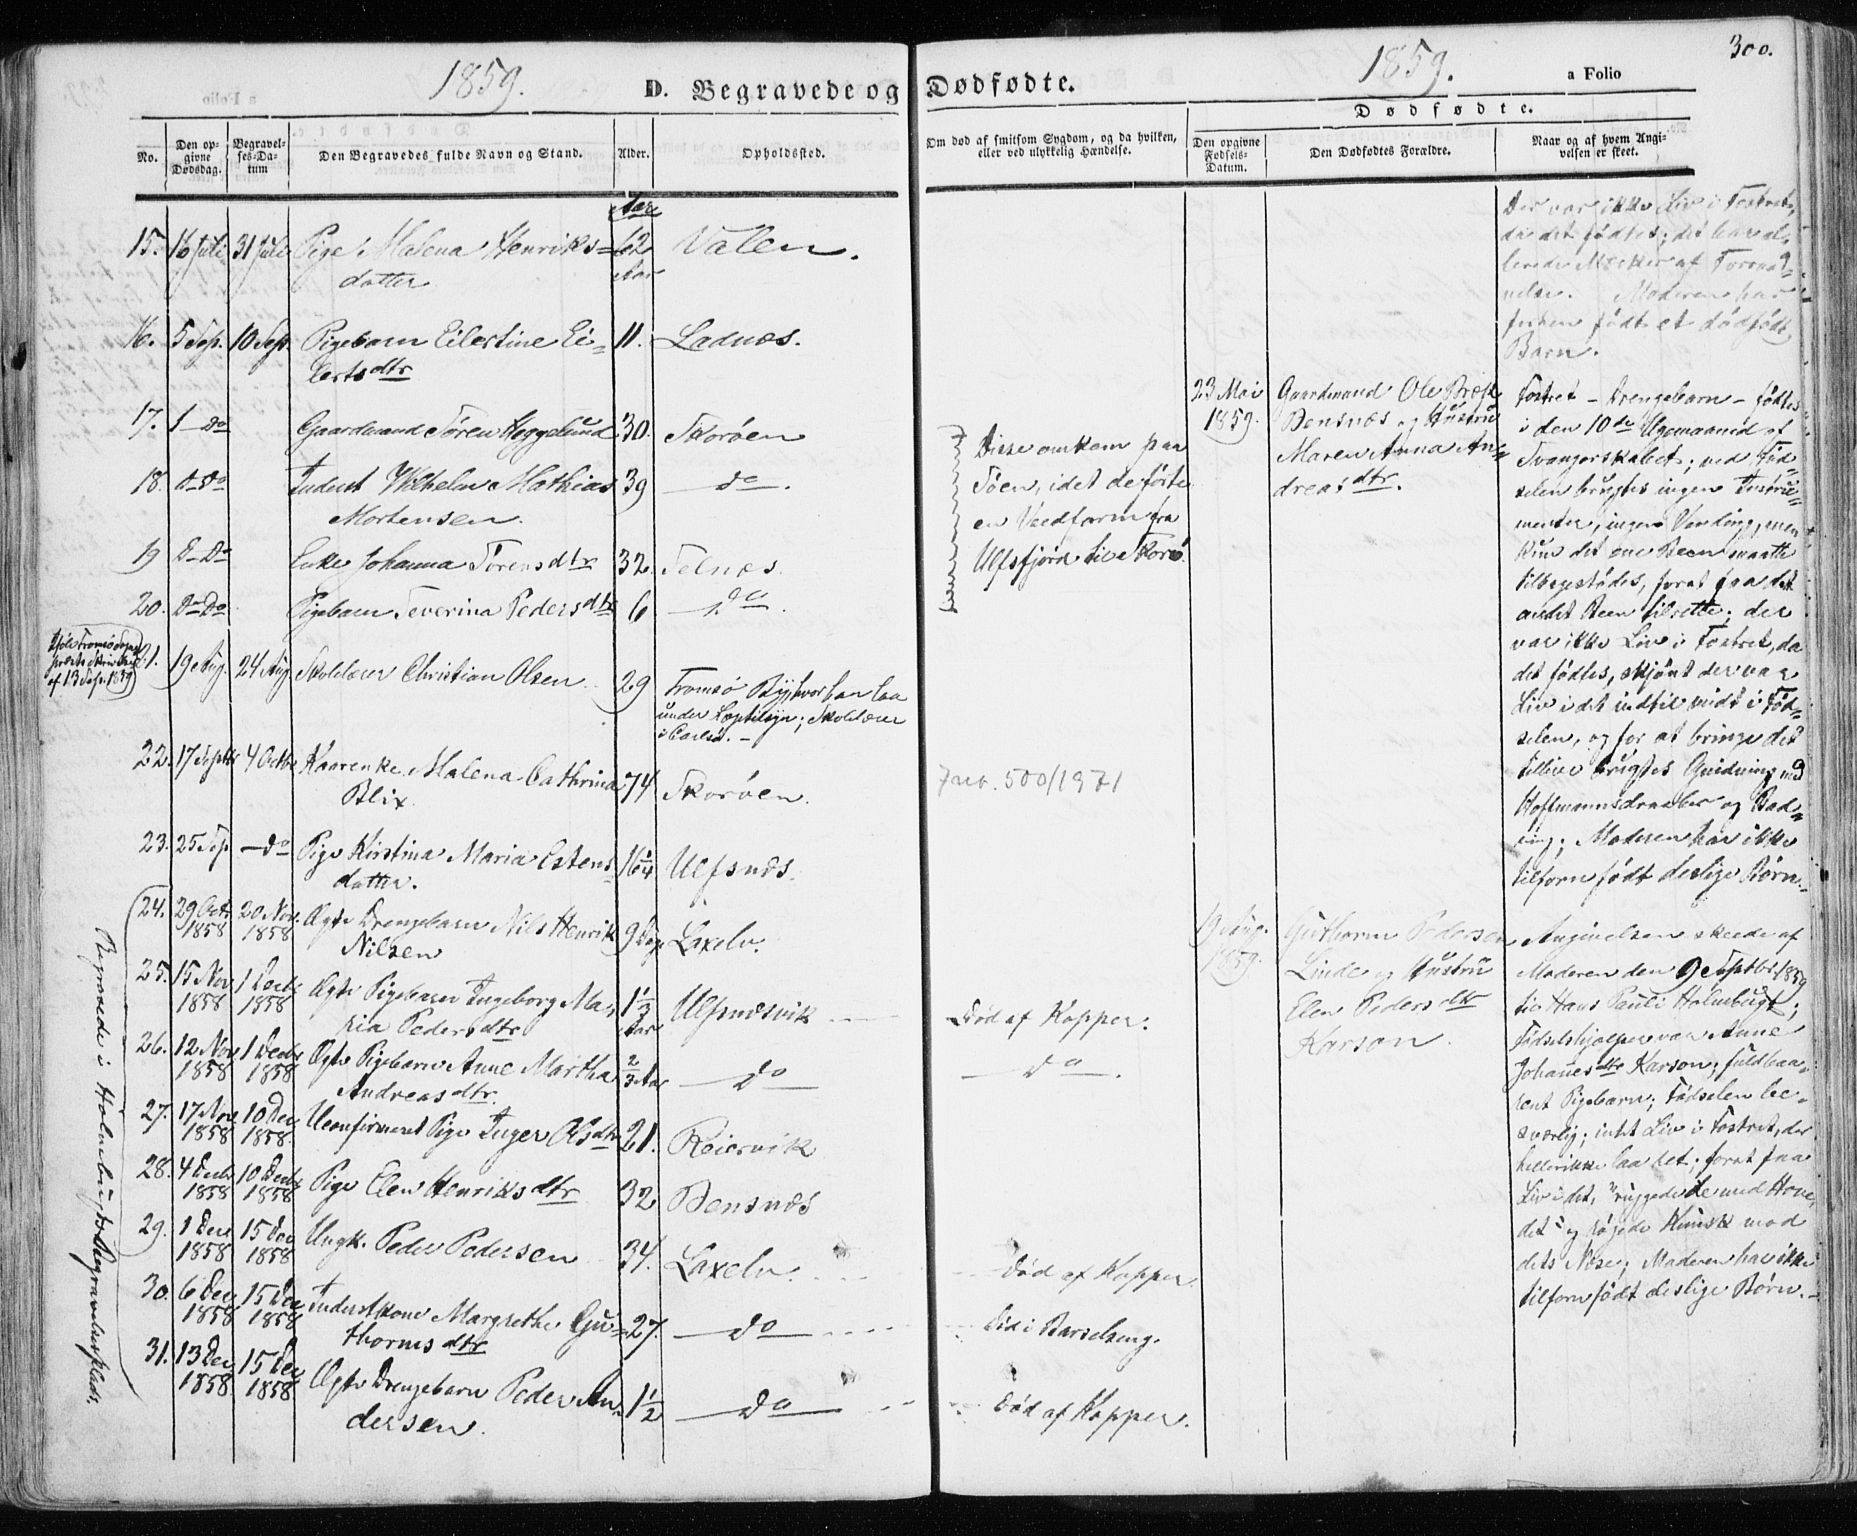 1859.
D. Begravede og
No.
Den op-
givne
Dødsdag.
Begravel-
ses-Da-
tum
Den Begravedes fulde Navn og Stand.
Alder.
Opholdssted.
Aar
15. 16 Juli 31 Juli Pige Malena Henriks- 62 Vallen.
datter Aar
16. 5 Sep. 10 Sept. Pigebarn Eilertine Ei- 11. Ladnæs.
lertsdtr
17. 1 Do Gaardmand Søren Heggelund 30. Skorøen
18. Do Do Inderst Wilhelm Mathias 39 do.
Mortensen.
19 Do Do Enke Johanna Sørensdtr 32. Selnæs.
20. Do Do Pigebarn Severina Pedersdtr 6 do.
af 13 Sep. 1859
21. 19 Aug. 24 Aug. Skolelærer Christian Olsen 29 Tromsø By, hvor han laa
under Lægetilsyn; Skolelærer
i Carlsø.
22. 17 Septbr 4 Octbr Kaarenke Malena Cathrina 74 Skorøen.
Blix.
23. 25 Sep do Pige Kirstina Maria Estens- 16 1/4 Ulfsnæs.
datter.
24. 29 Oct. 1858 20 Nov. 1858 Ægte Drengebarn Nils Henrik 9 Dage Laxelv.
Nilsen
25. 15 Nov 1858 1 Decb 1858 Ægte Pigebarn Ingeborg Ma- 1 1/3 Aar Ulfsnæsvik
ria Pedersdtr
26. 12 Nov 1858 1 Decbr 1858 Ægte Pigebarn Anne Martha 2/3 Aar do
Andreasdtr.
27. 17 Nov 1858 10 Dec 1858 Uconfirmeret Pige Inger Olsdtr 21. Reiervik
28. 4 Decbr 1858 10 Decb 1858 Pige Elen Henriksdtr 32 Bensnæs
29. 1 Dec 1858 15 Dec 1858 Ungk. Peder Pedersen 34. Laxelv.
30. 6 Dec 1858 15 Dec 1858 Inderstkone Margrethe Gu- 27. do
thormsdtr
31. 13 Dec 1858 15 Dec 1858 Ægte Drengebarn Peder An- 1 1/2 do
dersen.
Begravede i Holmebugts Begravelsesplads.
Dødfødte.
1859.
a Folio
300.
Om død af smitsom Sygdom, og da hvilken,
eller ved ulykkelig Hændelse.
Dødfødte.
Den opgivne
Fødsels-
Datum.
Den Dødfødtes Forældre.
Naar og af hvem Angi-
velsen er skeet.
Disse omkom paa
Søen, idet de førte
en Vedfarm fra
Ulfsfjord til Skorø.
500/1971
Død af Kopper.
do.
Død af Kopper
Död i Barselseng.
Død af Kopper.
23 Mai
1859.
Gaardmand Ole Brox
Bensnæs og Hustru
Maren Anna An-
dreasdtr.
19 Aug.
1859.
Guthorm Pedersen
Linde og Hustru
Elen Pedersdtr
Karson.
Der var ikke Liv i Fostret,
da det fødtes; det bar al-
lerede Mærker af Forraad-
nelse. Moderen har
forhen født et dødfødt
Barn.
Fostret - Drengebarn - fødtes
i den 10de Ugemaaned af
Svangerskabet; ved Fød-
selen brugtes ingen Instru-
menter, ingen Vending, men
kun det ene Been maatte
tilbagestødes, forat faa det
andet Been tilrette; der
var ikke Liv i Fostret, da
det fødtes, skjønt der var
Liv i det indtil midt i Fød-
selen, og for at bringe det
tillive brugtes Gnidning med
Hoffmannsdraaber og Bad-
ning; Moderen har ikke
tilforn født deslige Børn.
Angivelsen skeede af
Moderen den 9 Septbr 1859
til Hans Pauli Holmbugt;
Fødselshjælper var Anne
Johanesdtr Karson; fuldbaa-
rent Pigebarn; Fødselen be-
sværlig; intet Liv i Fostret, der
heller ikke laa ret; forat faa
Liv i det, "ruggede de med Hove-
det" og
dets Næse; Moderen har ikke
tilforn født deslige Børn.